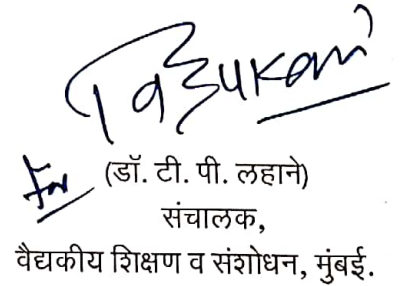 For (डॉ. टी. पी. लहाने)
संचालक,
वैद्यकीय शिक्षण व संशोधन, मुंबई.